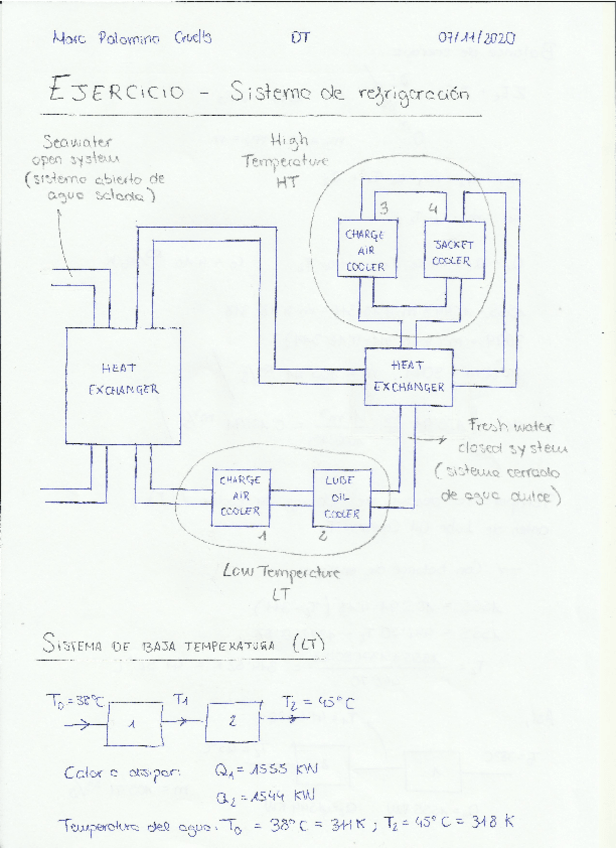 Marc Palomino Cruells DT 07/11/2020
EJERCICIO - Sistema de refrigeración
Seawater
open system
(sistema abierto de
agua salada)
High
Temperature
HT
3 4
CHARGE
AIR
COOLER
JACKET
COOLER
HEAT
EXCHANGER
HEAT
EXCHANGER
Fresh water
closed system
(sistema cerrado
de agua dulce)
CHARGE
AIR
COOLER
LUBE
OIL
COOLER
1 2
Low Temperature
LT
SISTEMA DE BAJA TEMPERATURA (LT)
T0 = 38°C T1 T2 = 45°C
1 2
Calor a disipar: Q1 = 1555 KW
Q2 = 1544 KW
Temperatura del agua: T0 = 38°C = 311 K ; T2 = 45°C = 318 K